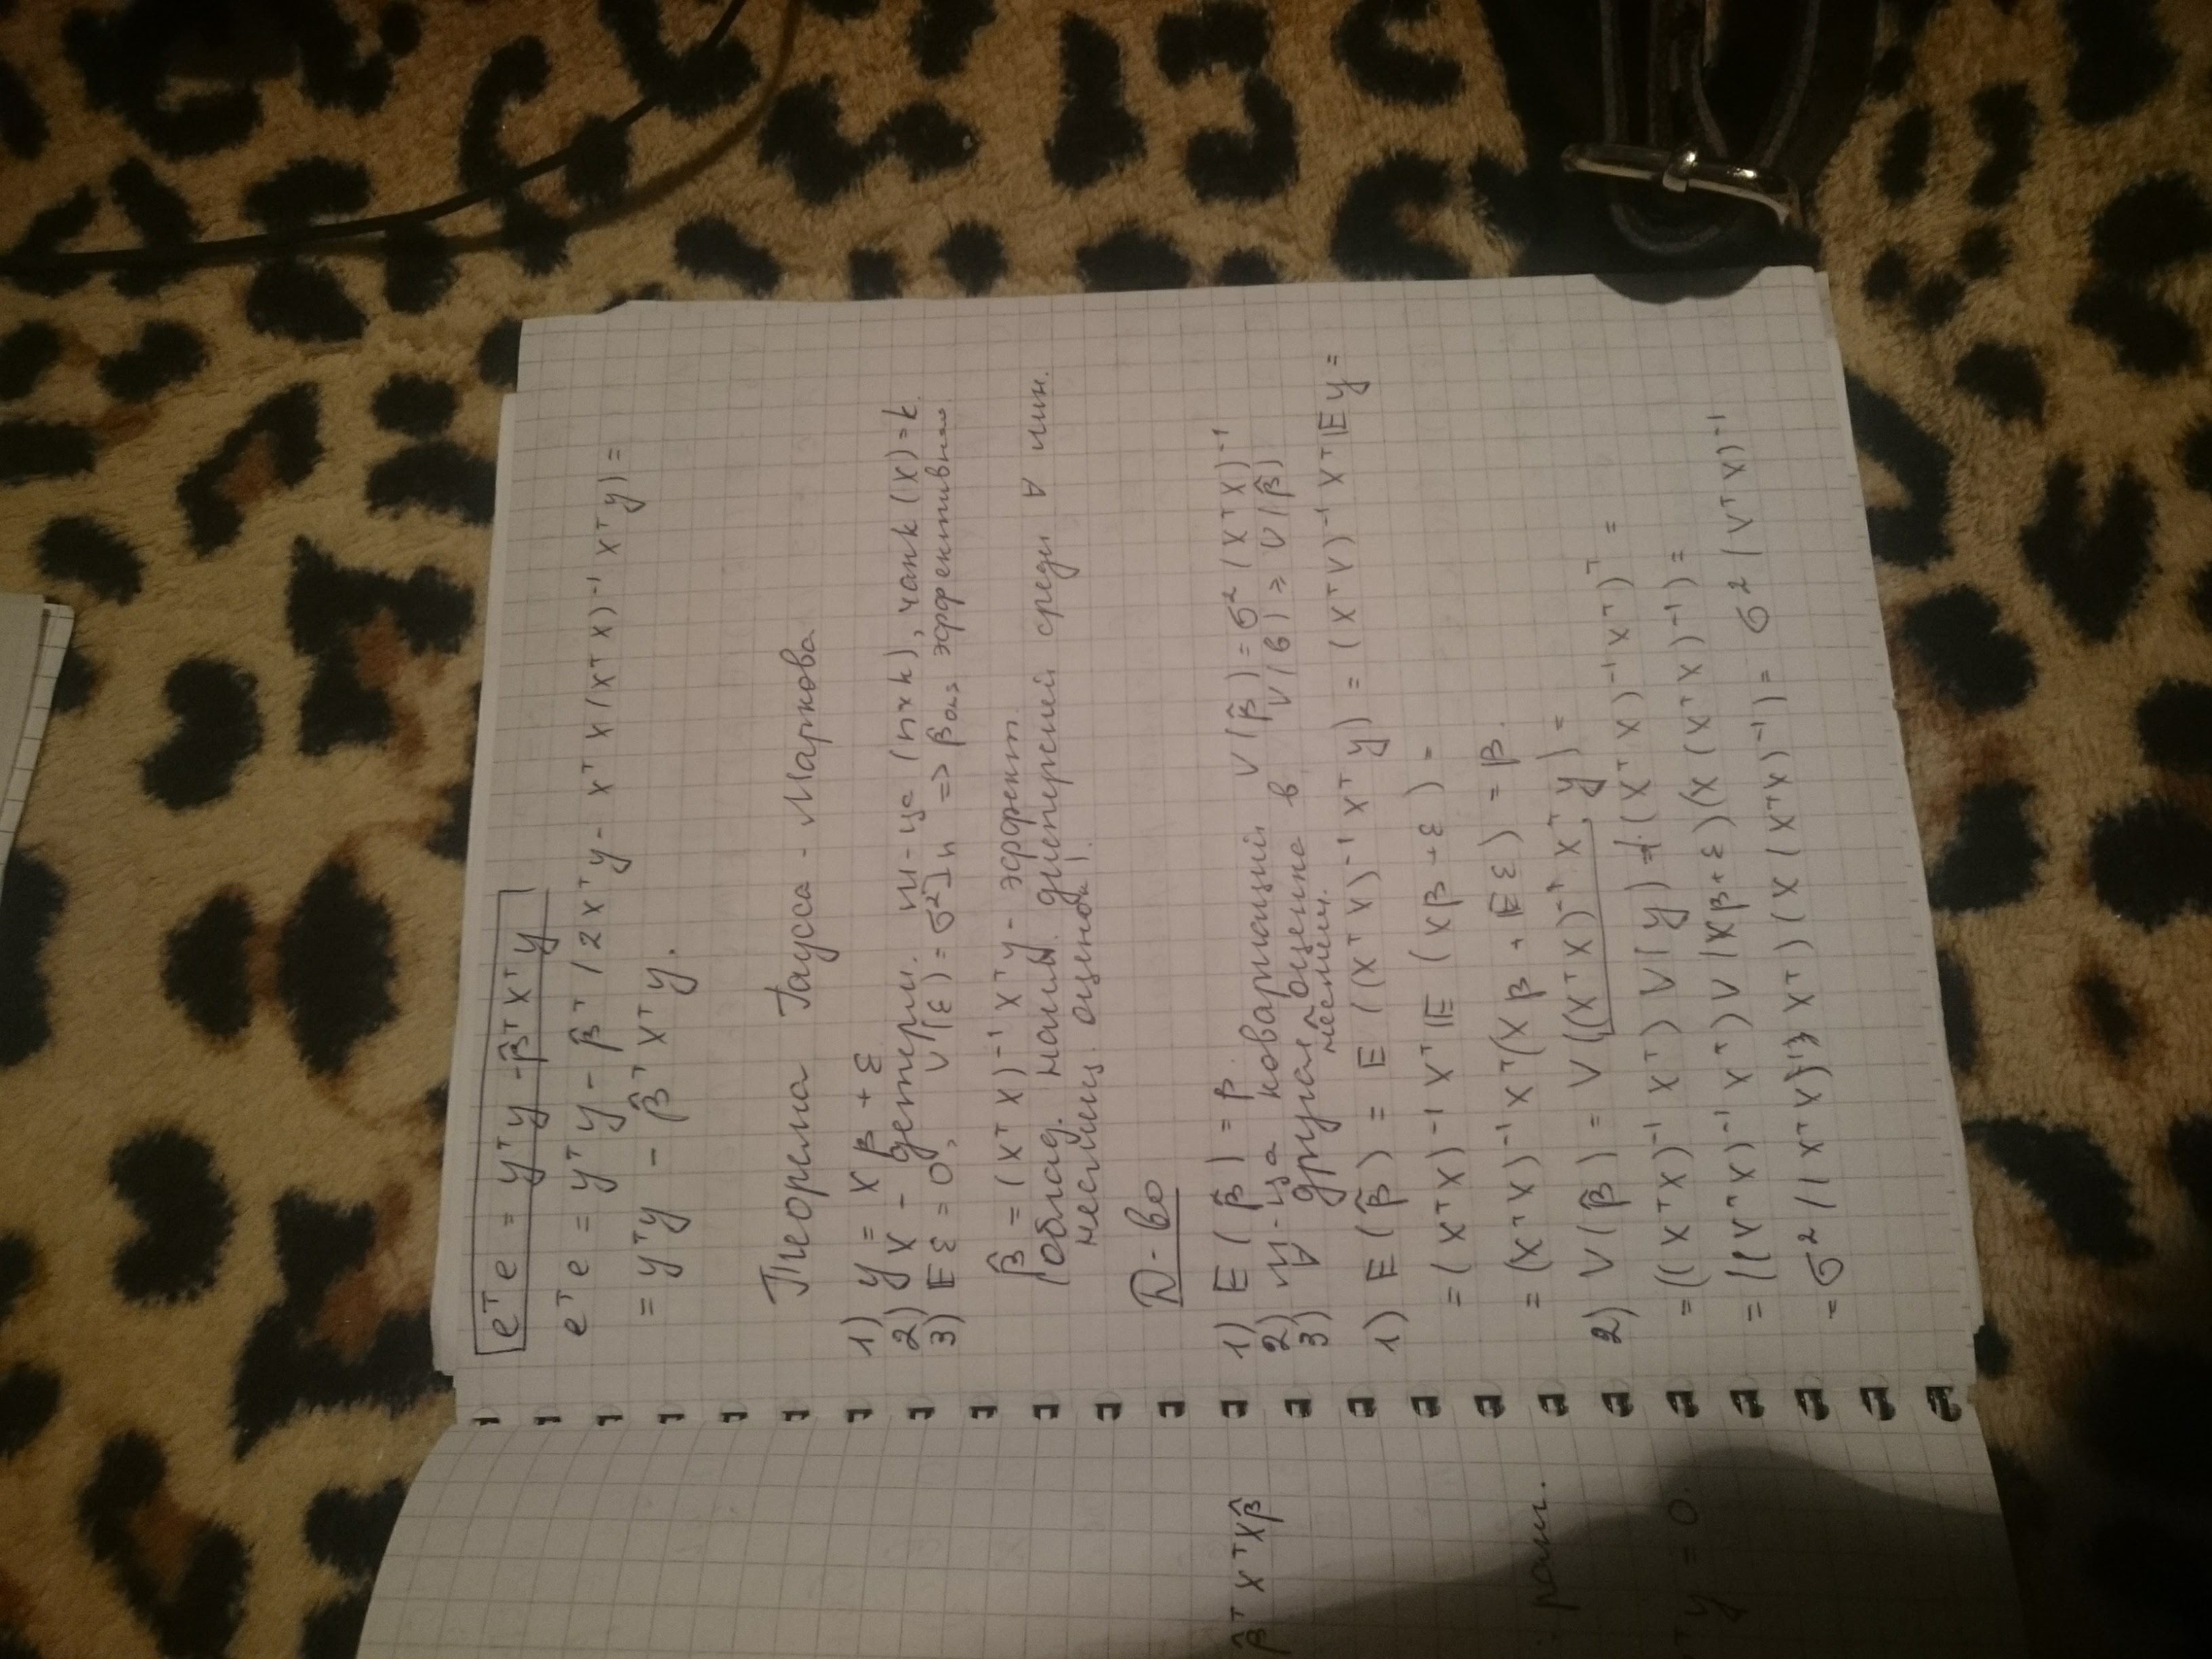 eᵀe = yᵀy - β̂ᵀxᵀy
eᵀe = yᵀy - β̂ᵀ(2xᵀy - xᵀx(xᵀx)⁻¹xᵀy) =
= yᵀy - β̂ᵀxᵀy.
Теорема Гаусса - Маркова
1) y = xβ + ε
2) x - детерм. м-ца (n×k), rank(x)=k.
3) 𝔼ε = 0, V(ε) = σ²Iₙ => β̂ols эффективная
β̂ = (xᵀx)⁻¹xᵀy - эффект.
(облад. наим. дисперсией среди ∀ лин.
несмещ. оценок).
Д-во
1) 𝔼(β̂) = β
2) м-ца ковариаций V(β̂) = σ²(xᵀx)⁻¹
3) ∀ другая оценка b V(b) ≥ V(β̂)
несмещ.
1) 𝔼(β̂) = 𝔼((xᵀx)⁻¹xᵀy) = (xᵀx)⁻¹xᵀ𝔼y =
= (xᵀx)⁻¹xᵀ𝔼(xβ + ε) =
= (xᵀx)⁻¹xᵀ(xβ + 𝔼ε) = β.
2) V(β̂) = V((xᵀx)⁻¹xᵀy) =
= ((xᵀx)⁻¹xᵀ)V(y)·((xᵀx)⁻¹xᵀ)ᵀ =
= ((xᵀx)⁻¹xᵀ)V(xβ+ε)(x(xᵀx)⁻¹) =
= σ²((xᵀx)⁻¹xᵀ)(x(xᵀx)⁻¹) = σ²(xᵀx)⁻¹
β̂ᵀxᵀxβ̂
y = 0.